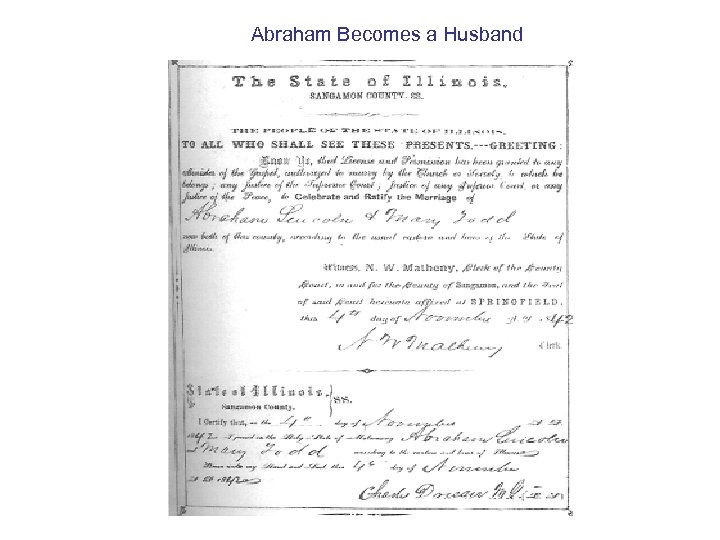 Abraham Becomes a Husband
The State of Illinois,
SANGAMON COUNTY. SS.
THE PEOPLE OF THE STATE OF ILLINOIS,
TO ALL WHO SHALL SEE THESE PRESENTS,---GREETING:
Know Ye, that License and Permission has been granted to any
Minister of the Gospel, authorized to marry by the Church or Society to which he
belongs; any Justice of the Supreme Court; Justice of any Inferior Court, or any
Justice of the Peace, to Celebrate and Ratify the Marriage of
Abraham Lincoln & Mary Todd
now both of this county, according to the usual custom and laws of the State of
Illinois.
Witness, N. W. Matheny, Clerk of the County
Court, in and for the County of Sangamon, and the Seal
of said Court hereunto affixed at SPRINGFIELD,
this 4th day of November A.D. 1842
N W Matheny Clerk.
State of Illinois,
SS.
Sangamon County.
I Certify that, on the 4th day of November A.D.
1842 I joined in the Holy State of Matrimony Abraham Lincoln
& Mary Todd according to the custom and laws of Illinois
Given under my Hand and Seal this 4th day of November
A.D. 1842
Charles Dresser